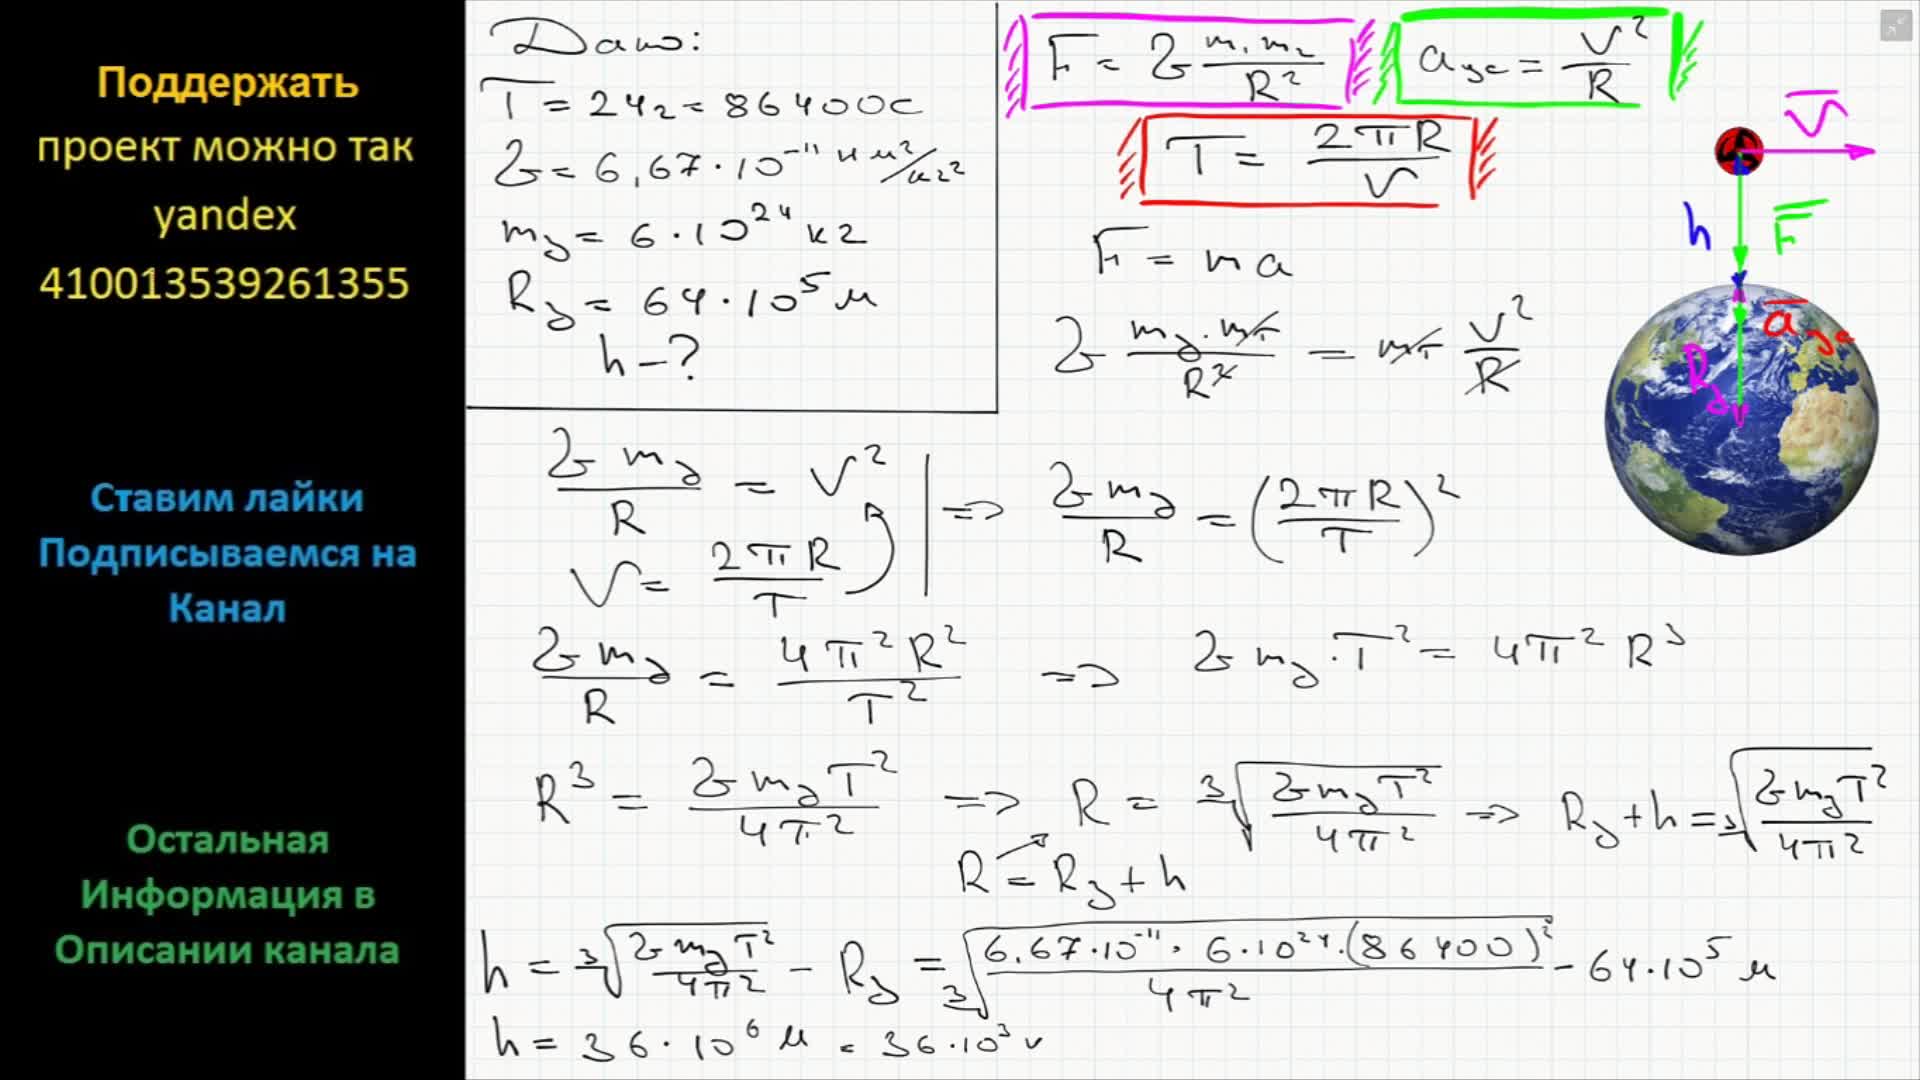 Поддержать
проект можно так
yandex
410013539261355
Ставим лайки
Подписываемся на
Канал
Остальная
Информация в
Описании канала
Дано:
T = 24ч = 86400с
G = 6,67·10⁻¹¹ Н м²/кг²
mз = 6·10²⁴ кг
Rз = 64·10⁵ м
h - ?
F = G m₁m₂/R²
aцс = V²/R
T = 2πR/V
F = ma
G mз·mт/R² = mт V²/R
V
h
F
aцс
Rз
G mз/R = V²
V = 2πR/T
=> G mз/R = (2πR/T)²
G mз/R = 4π²R²/T² => G mз·T² = 4π² R³
R³ = G mз T²/4π² => R = ³√(G mз T²/4π²) => Rз + h = ³√(G mз T²/4π²)
R = Rз + h
h = ³√(G mз T²/4π²) - Rз = ³√(6,67·10⁻¹¹·6·10²⁴·(86400)²/4π²) - 64·10⁵ м
h = 36·10⁶ м = 36·10³